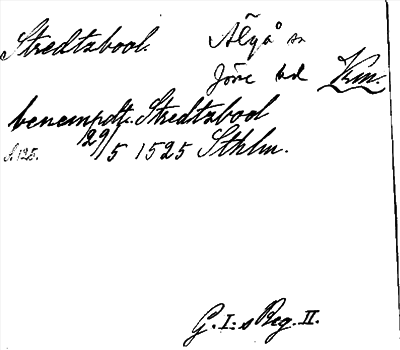 Stredtzbool. Älgå sn
Jösse hd Vrm.
benempdt. Stredtzbool
S. 125. 29/5 1525 Sthlm.
G. I:s Reg. II.